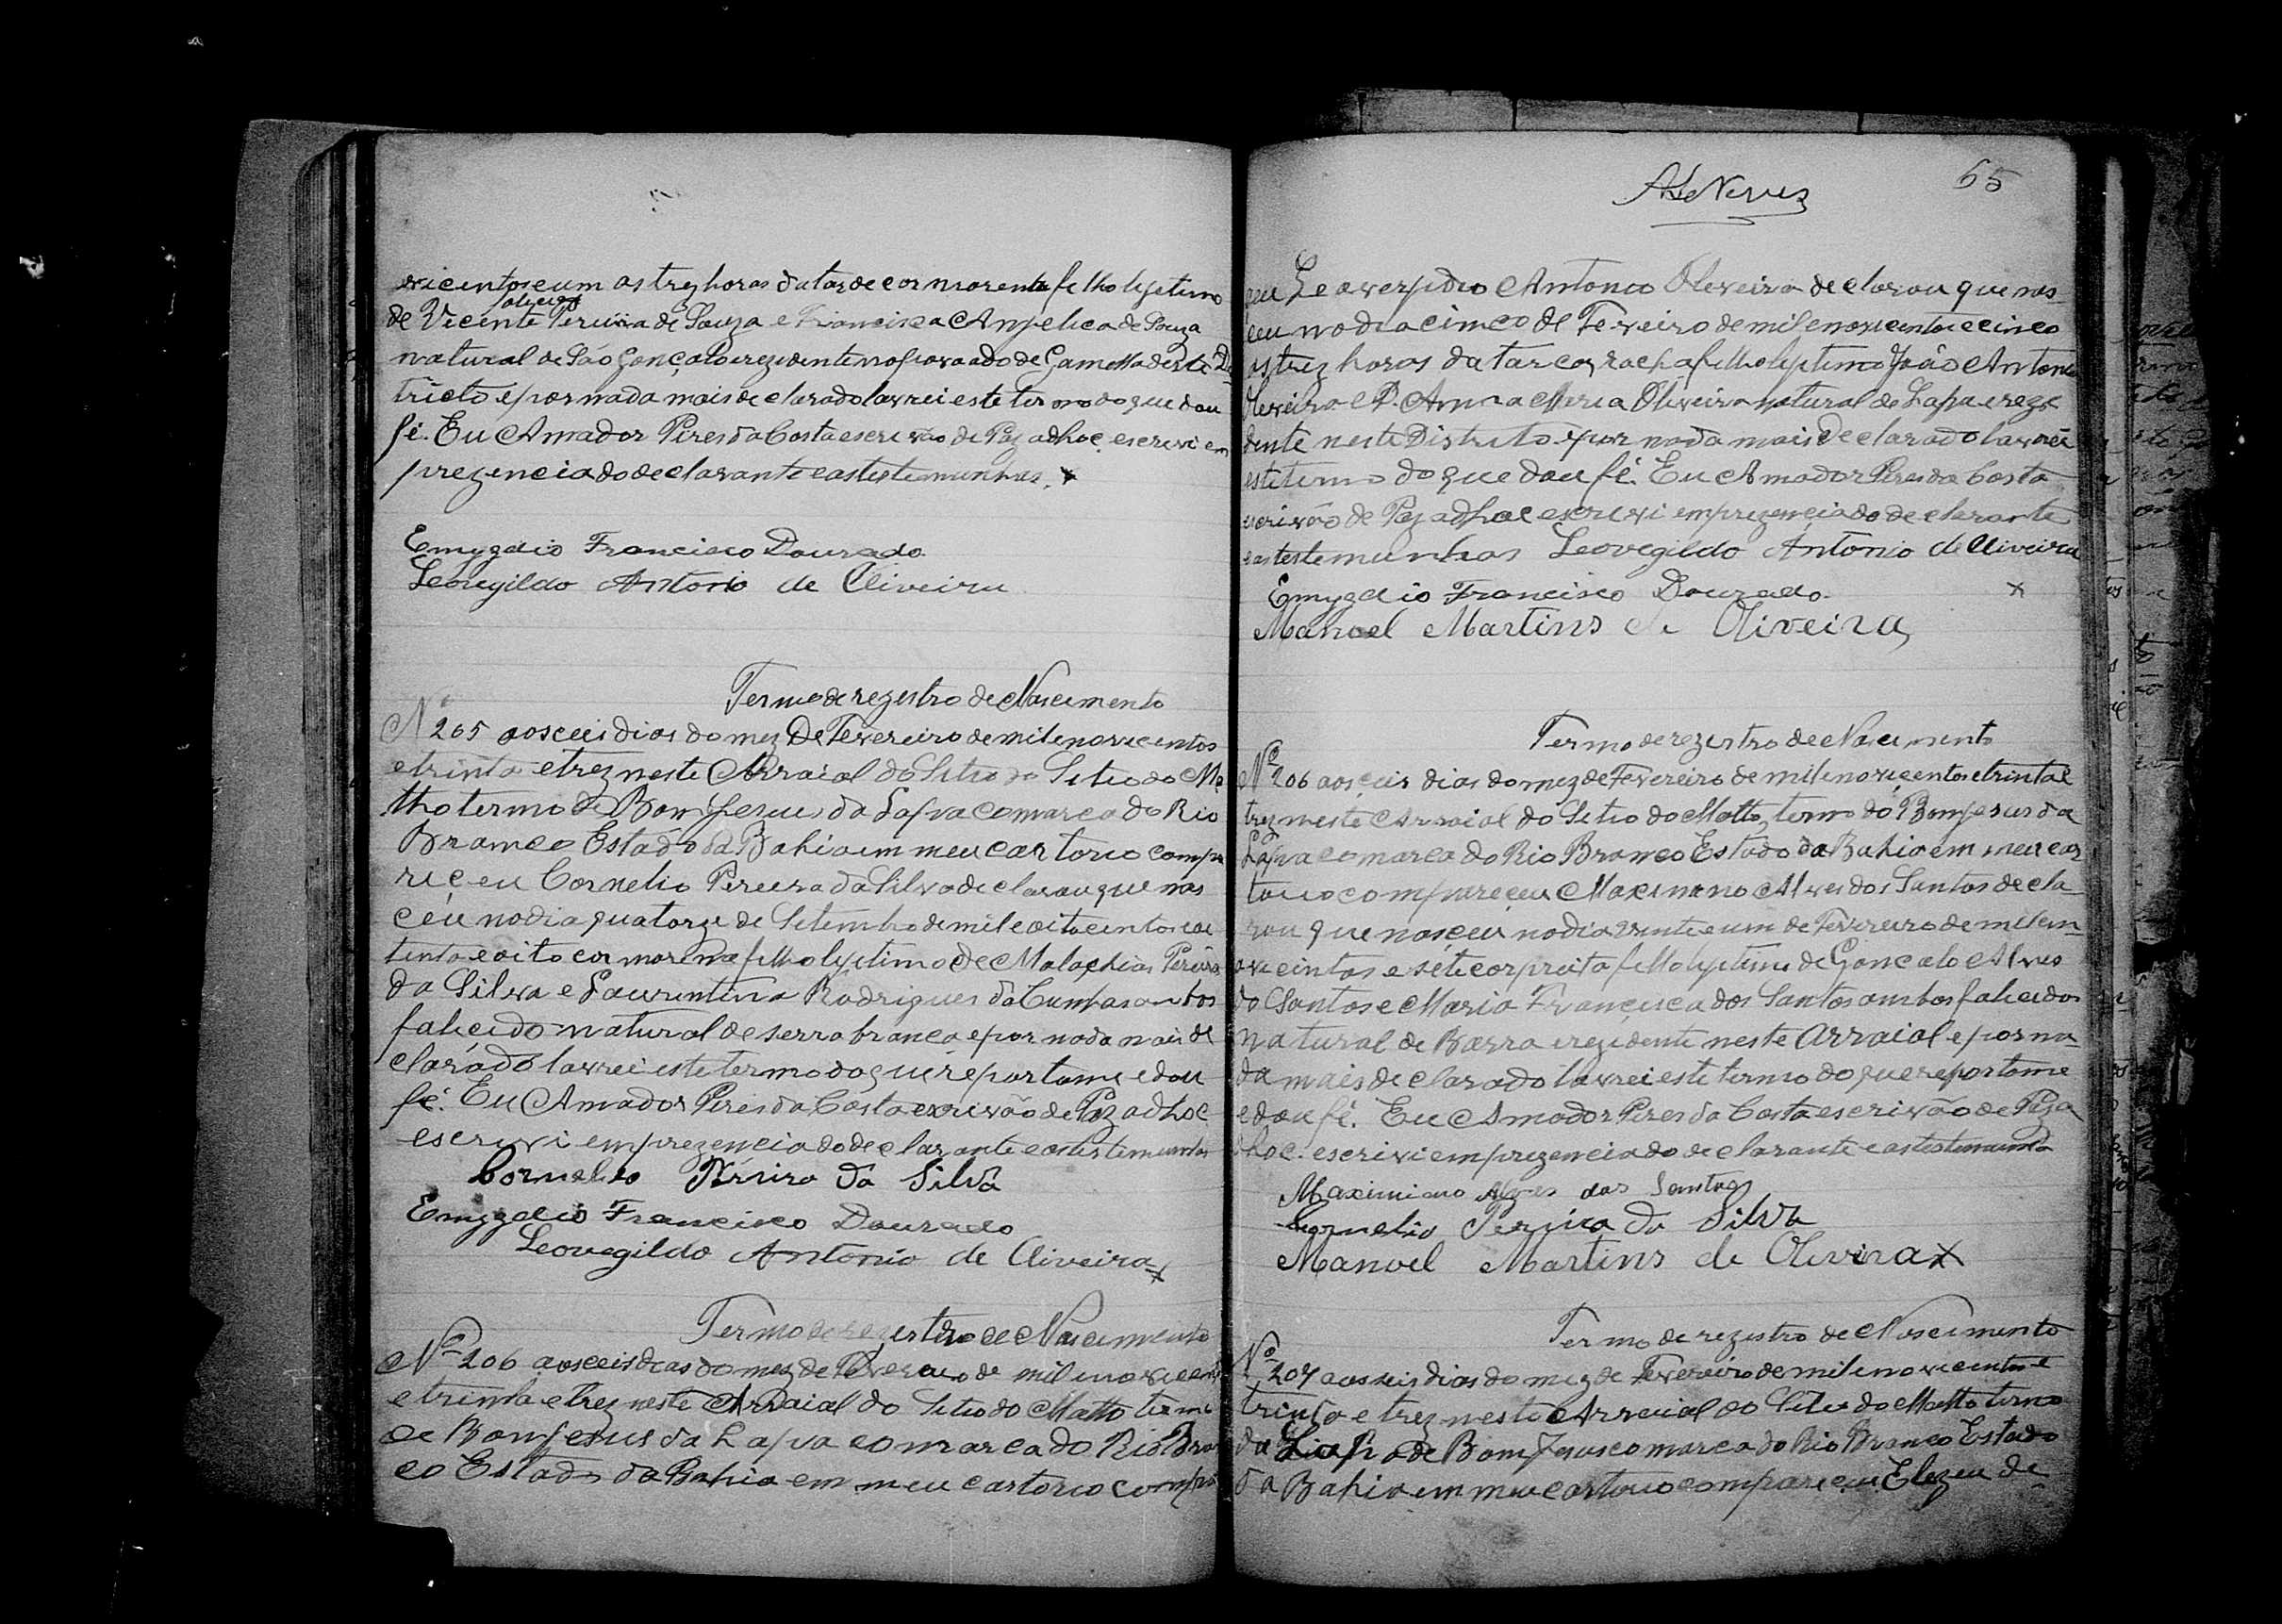 vicentos e um as trez horas da tarde cor morenta filho lijetimo
falicido
de Vicente Pereira de Souza e Francisca Angelica de Souza
natural de São Gonçalo e rezidente no povoado de Gamella deste Dis
tricto e por nada mais declarado lavrei este termo do que dou
fé. Eu Amador Pires da Costa escrivão de Paz adhoc escrevi em
prezencia do declarante e as testemunhas.
Emygdio Francisco Dourado
Leovegildo Antonio de Oliveira
Termo de rezistro de Nascimento
Nº 205 aos ceis dias do mez De Fevereiro de mil enovicentos
e trinta e trez neste Arraial do Sitio do Sitio do Ma
tho termo de Bom Jezus da Lapa comarca do Rio
Branco Estado da Bahia em meu cartorio compa
receu Cornelio Pereira da Silva declarou que nas
céu no dia quatorze de Setembro de mil e oitocentos e oi
tenta e oito cor morena filho lijetimo de Malachias Pereira
da Silva e Laurentina Rodrigues da Cunha ambos
falicido natural de serra branca e por nada mais de
clarado lavrei este termo do que reportome e dou
fé. Eu Amador Pires da Costa escrivão de Paz adhoc
escrevi em prezencia do declarante e as testemunhas
Cornelio Pereira da Silva
Emygdio Francisco Dourado
Leovegildo Antonio de Oliveira
Termo de rezistro de Nascimento
Nº 206 aos ceis dias do mez de Fevereiro de mil enovicentos
e trinta e trez neste Arraial do Sitio do Matto termo
de Bom Jesus da Lapa comarca do Rio Bran
co Estado da Bahia em meu cartorio compa
65
ASNeves
ceu Leovegidio Antonio Oliveira declarou que nas
ceu no dia cinco de Fevereiro de mil enovicentos e cinco
as trez horas da tar cor filho lijetimo João Antonio
Oliveira e D. Anna Maria Oliveira natural de Lapa e rezi
dente neste Distrito e por nada mais declarado lavrei
este termo do que dou fé. Eu Amador Pires da Costa
escrivão de Paz adhoc escrevi em prezencia do declarante
e as testemunhas Leovegildo Antonio de Oliveira
Emygdio Francisco Dourado. x
Manoel Martins de Oliveira
Termo de rezistro de Nascimento
Nº 206 aos ceis dias do mez de Fevereiro de mil enovicentos e trinta e
trez neste Arraial do Sitio do Matto, termo do Bom Jesus da
Lapa comarca do Rio Branco Estado da Bahia em meu car
torio compareceu Maximiano Alves dos Santos decla
rou que nasceu no dia vinte e um de Fevereiro de mil en
ovicentos e sete cor preta filho lijetimo de Gonçalo Alves
do Santos e Maria Francisca dos Santos ambos falicidos
natural de Barra e rezidente neste Arraial e por na
da mais declarado lavrei este termo do que reportome
e dou fé. Eu Amador Pires da Costa escrivão de Paz a
dhoc. escrevi em prezencia do declarante e as testemunha
Maximiano Alves dos Santos
Cornelio Pereira da Silva
Manoel Martins de Oliveira x
Termo de rezistro de Nascimento
Nº 207 aos seis dias do mez de Fevereiro de mil enovicentos e
trinta e trez neste Arraial do Sitio do Matto termo
da Lapa de Bom Jesus comarca do Rio Branco Estado
da Bahia em meu cartorio compareceu Elizeu de